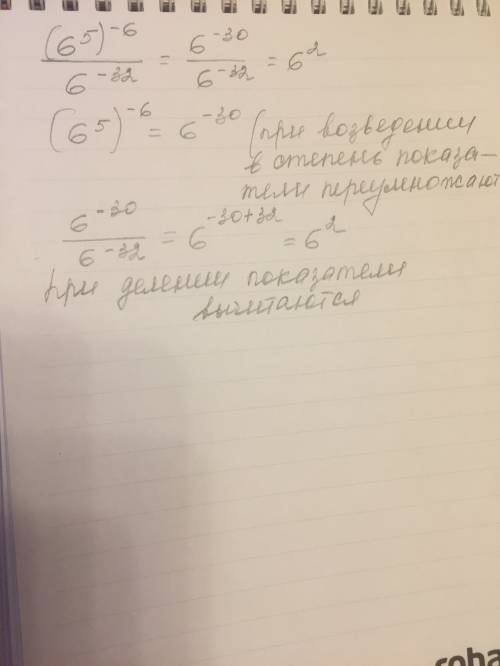 (6^5)^-6 / 6^-32 = 6^-30 / 6^-32 = 6^2
(6^5)^-6 = 6^-30 (при возведении
в степень показа-
тели переумножают
6^-30 / 6^-32 = 6^-30+32 = 6^2
при делении показатели
вычитаются